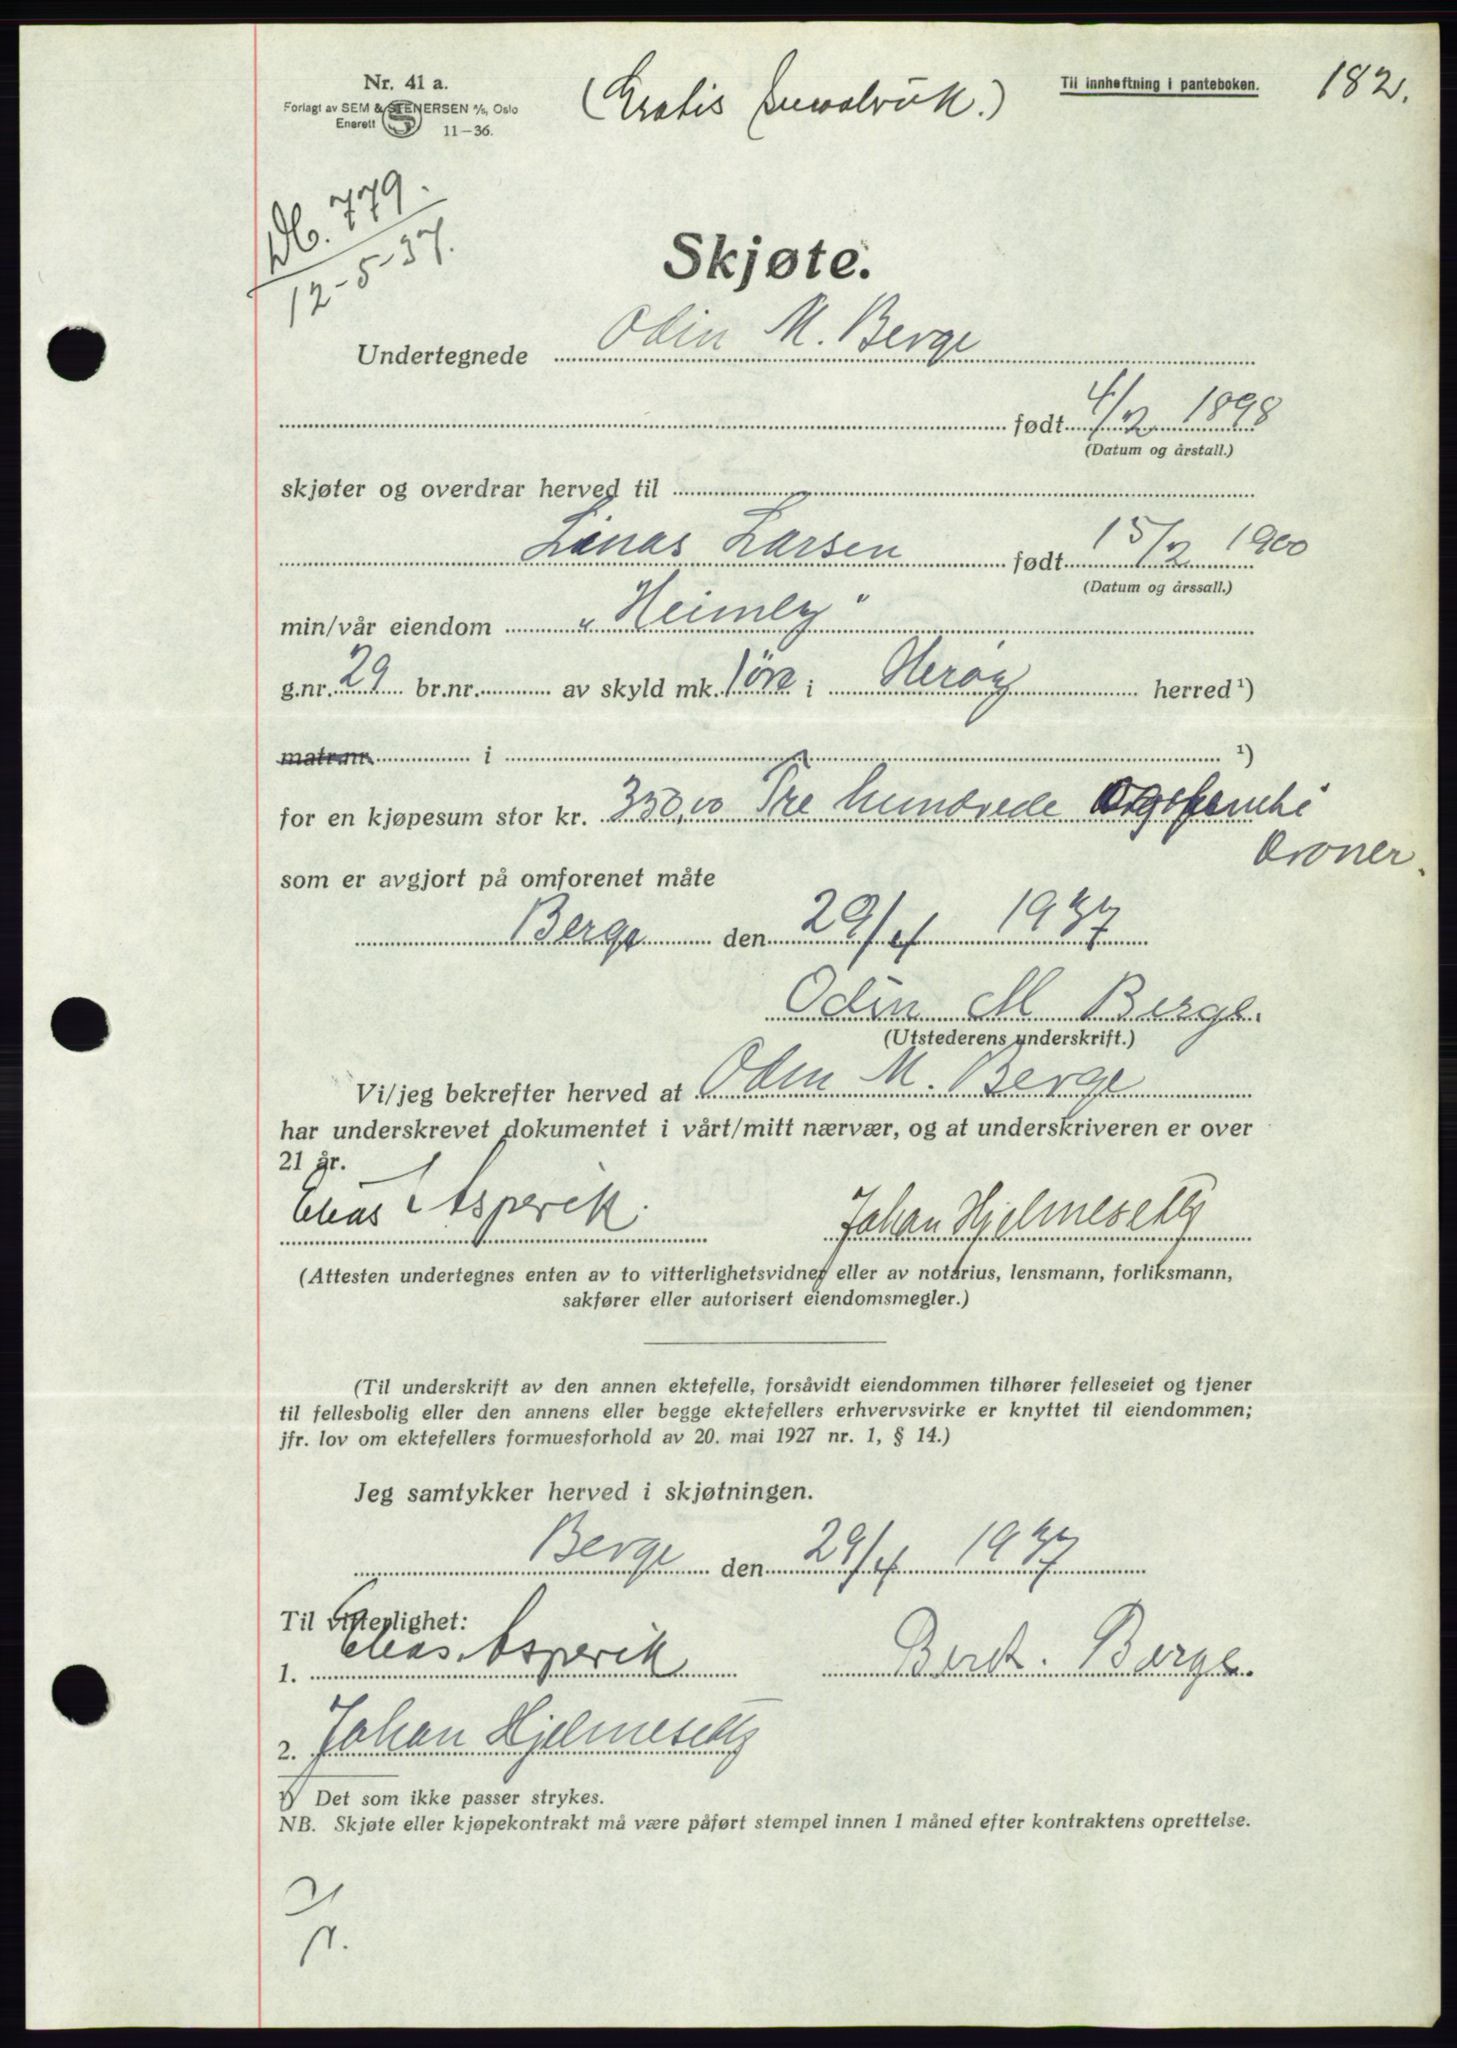 Nr. 41 a.
Forlagt av SEM & STENERSEN A/S, Oslo
Enerett 11-36.
(Gratis
Til innheftning i panteboken.
182.
Db. 779.
12-5-37.
Skjøte.
Undertegnede Odin M. Berge
født 4/2 1898
(Datum og årstall.)
skjøter og overdrar herved til
Linas Larsen født 15/2 1900
(Datum og årssall.)
min/vår eiendom "Heimly"
g.nr. 29 br.nr. av skyld mk. 1 øre i Herøy herred ¹)
matr.nr. i ¹)
for en kjøpesum stor kr. 350,00 Tre hundrede og femti
kroner.
som er avgjort på omforenet måte
Berge den 29/4 1937
Odin M Berge.
(Utstederens underskrift.)
Vi/jeg bekrefter herved at Odin M. Berge
har underskrevet dokumentet i vårt/mitt nærvær, og at underskriveren er over
21 år.
Elias Asperik. Johan Hjelmeseth
(Attesten undertegnes enten av to vitterlighetsvidner eller av notarius, lensmann, forliksmann,
sakfører eller autorisert eiendomsmegler.)
(Til underskrift av den annen ektefelle, forsåvidt eiendommen tilhører felleseiet og tjener
til fellesbolig eller den annens eller begge ektefellers erhvervsvirke er knyttet til eiendommen;
jfr. lov om ektefellers formuesforhold av 20. mai 1927 nr. 1, § 14.)
Jeg samtykker herved i skjøtningen.
Berge den 29/4 1937
Til vitterlighet:
1. Elias Asperik Berit. Berge.
2. Johan Hjelmeseth
¹) Det som ikke passer strykes.
NB. Skjøte eller kjøpekontrakt må være påført stempel innen 1 måned efter kontraktens oprettelse.